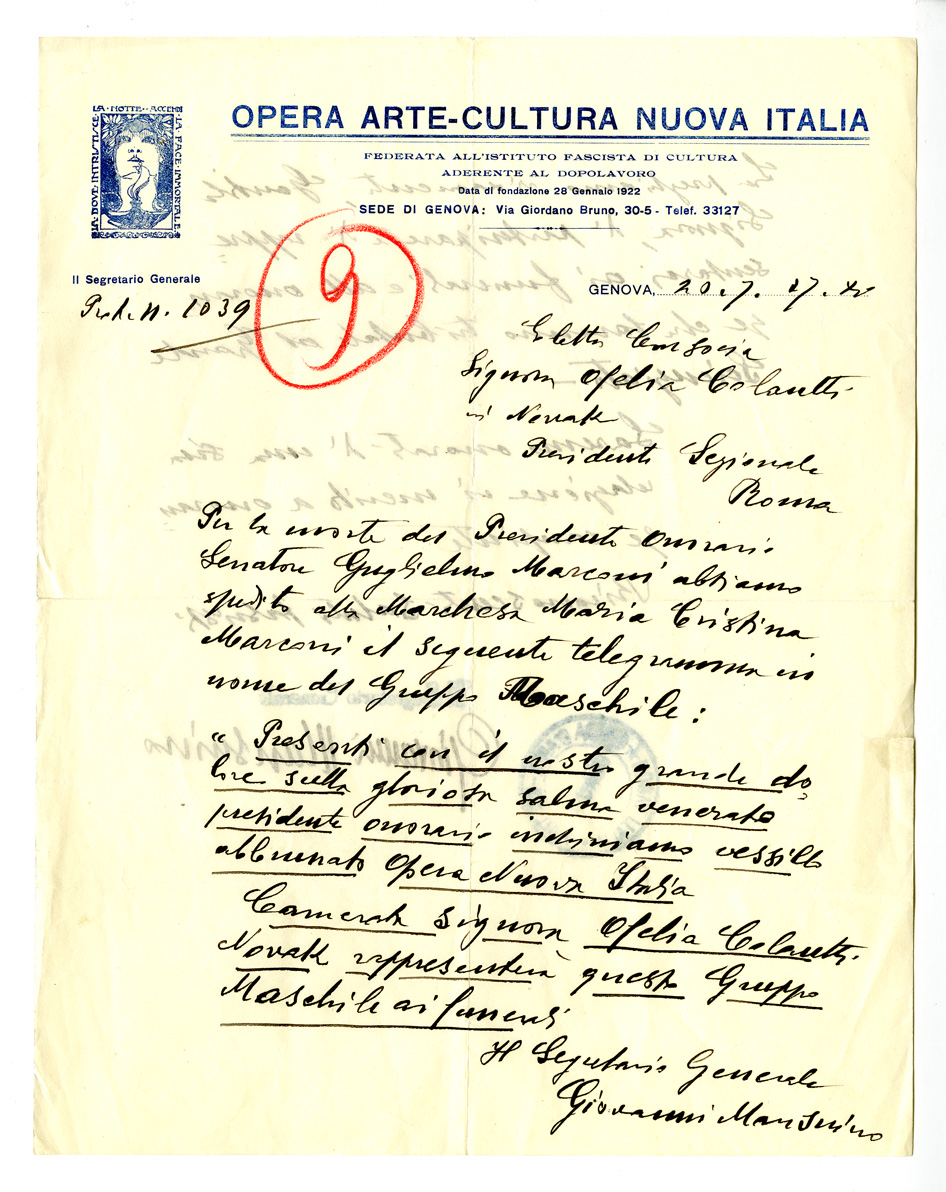 LA NOTTE ACCENDE
LA FACE IMMORTALE
LA DOVE INTRISTISCE
OPERA ARTE-CULTURA NUOVA ITALIA
FEDERATA ALL'ISTITUTO FASCISTA DI CULTURA
ADERENTE AL DOPOLAVORO
Data di fondazione 28 Gennaio 1922
SEDE DI GENOVA: Via Giordano Bruno, 30-5 - Telef. 33127
9
Il Segretario Generale
Prot. N. 1039
GENOVA, 20.7.37.XV
Eletta Consocia
Signora Ofelia Colautti
in Novak
Presidente Sezionale
Roma
Per la morte del Presidente Onorario
Senatore Guglielmo Marconi abbiamo
spedito alla Marchesa Maria Cristina
Marconi il seguente telegramma in
nome del Gruppo Maschile:
"Presenti con il nostro grande do
lore sulla gloriosa salma venerato
presidente onorario inchiniamo vessillo
abbrunato Opera Nuova Italia
Camerata Signora Ofelia Colautti-
Novak rappresenterà questo Gruppo
Maschile ai funerali
Il Segretario Generale
Giovanni